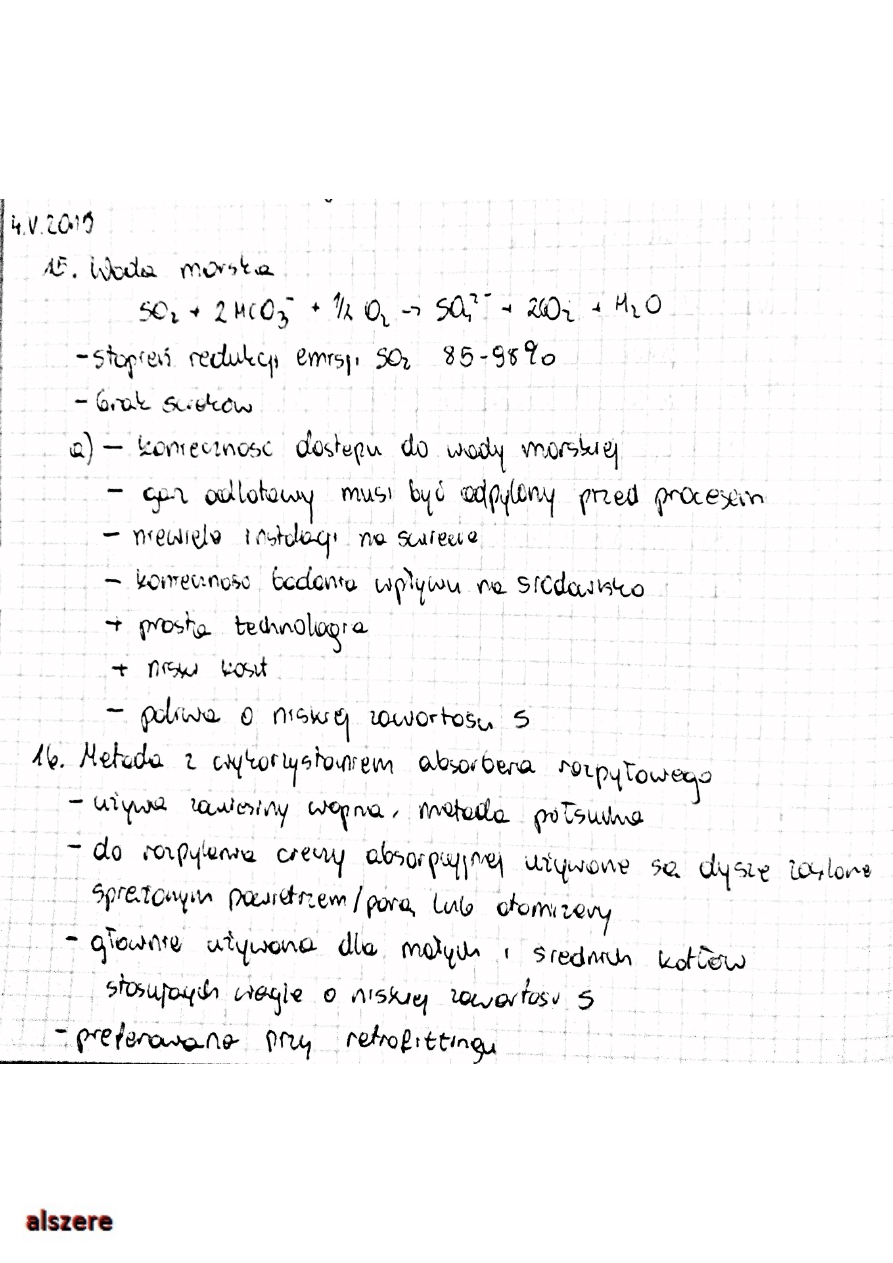 4.V.2019
15. Woda morska
SO₂ + 2 HCO₃⁻ + 1/2 O₂ → SO₄²⁻ + 2CO₂ + H₂O
- stopień redukcji emisji SO₂ 85-98%
- brak ścieków
a) - konieczność dostępu do wody morskiej
- gaz odlotowy musi być odpylony przed procesem
- niewiele instalacji na świecie
- konieczność badania wpływu na środowisko
+ prosta technologia
+ niski koszt
- paliwa o niskiej zawartości S
16. Metoda z wykorzystaniem absorbera rozpyłowego
- używa zawiesiny wapna, metoda półsucha
- do rozpylenia cieczy absorpcyjnej używane są dysze zasilane
sprężonym powietrzem/parą lub atomizery
- głównie używana dla małych i średnich kotłów
stosujących węgle o niskiej zawartości S
- preferowana przy retrofittingu
alszere